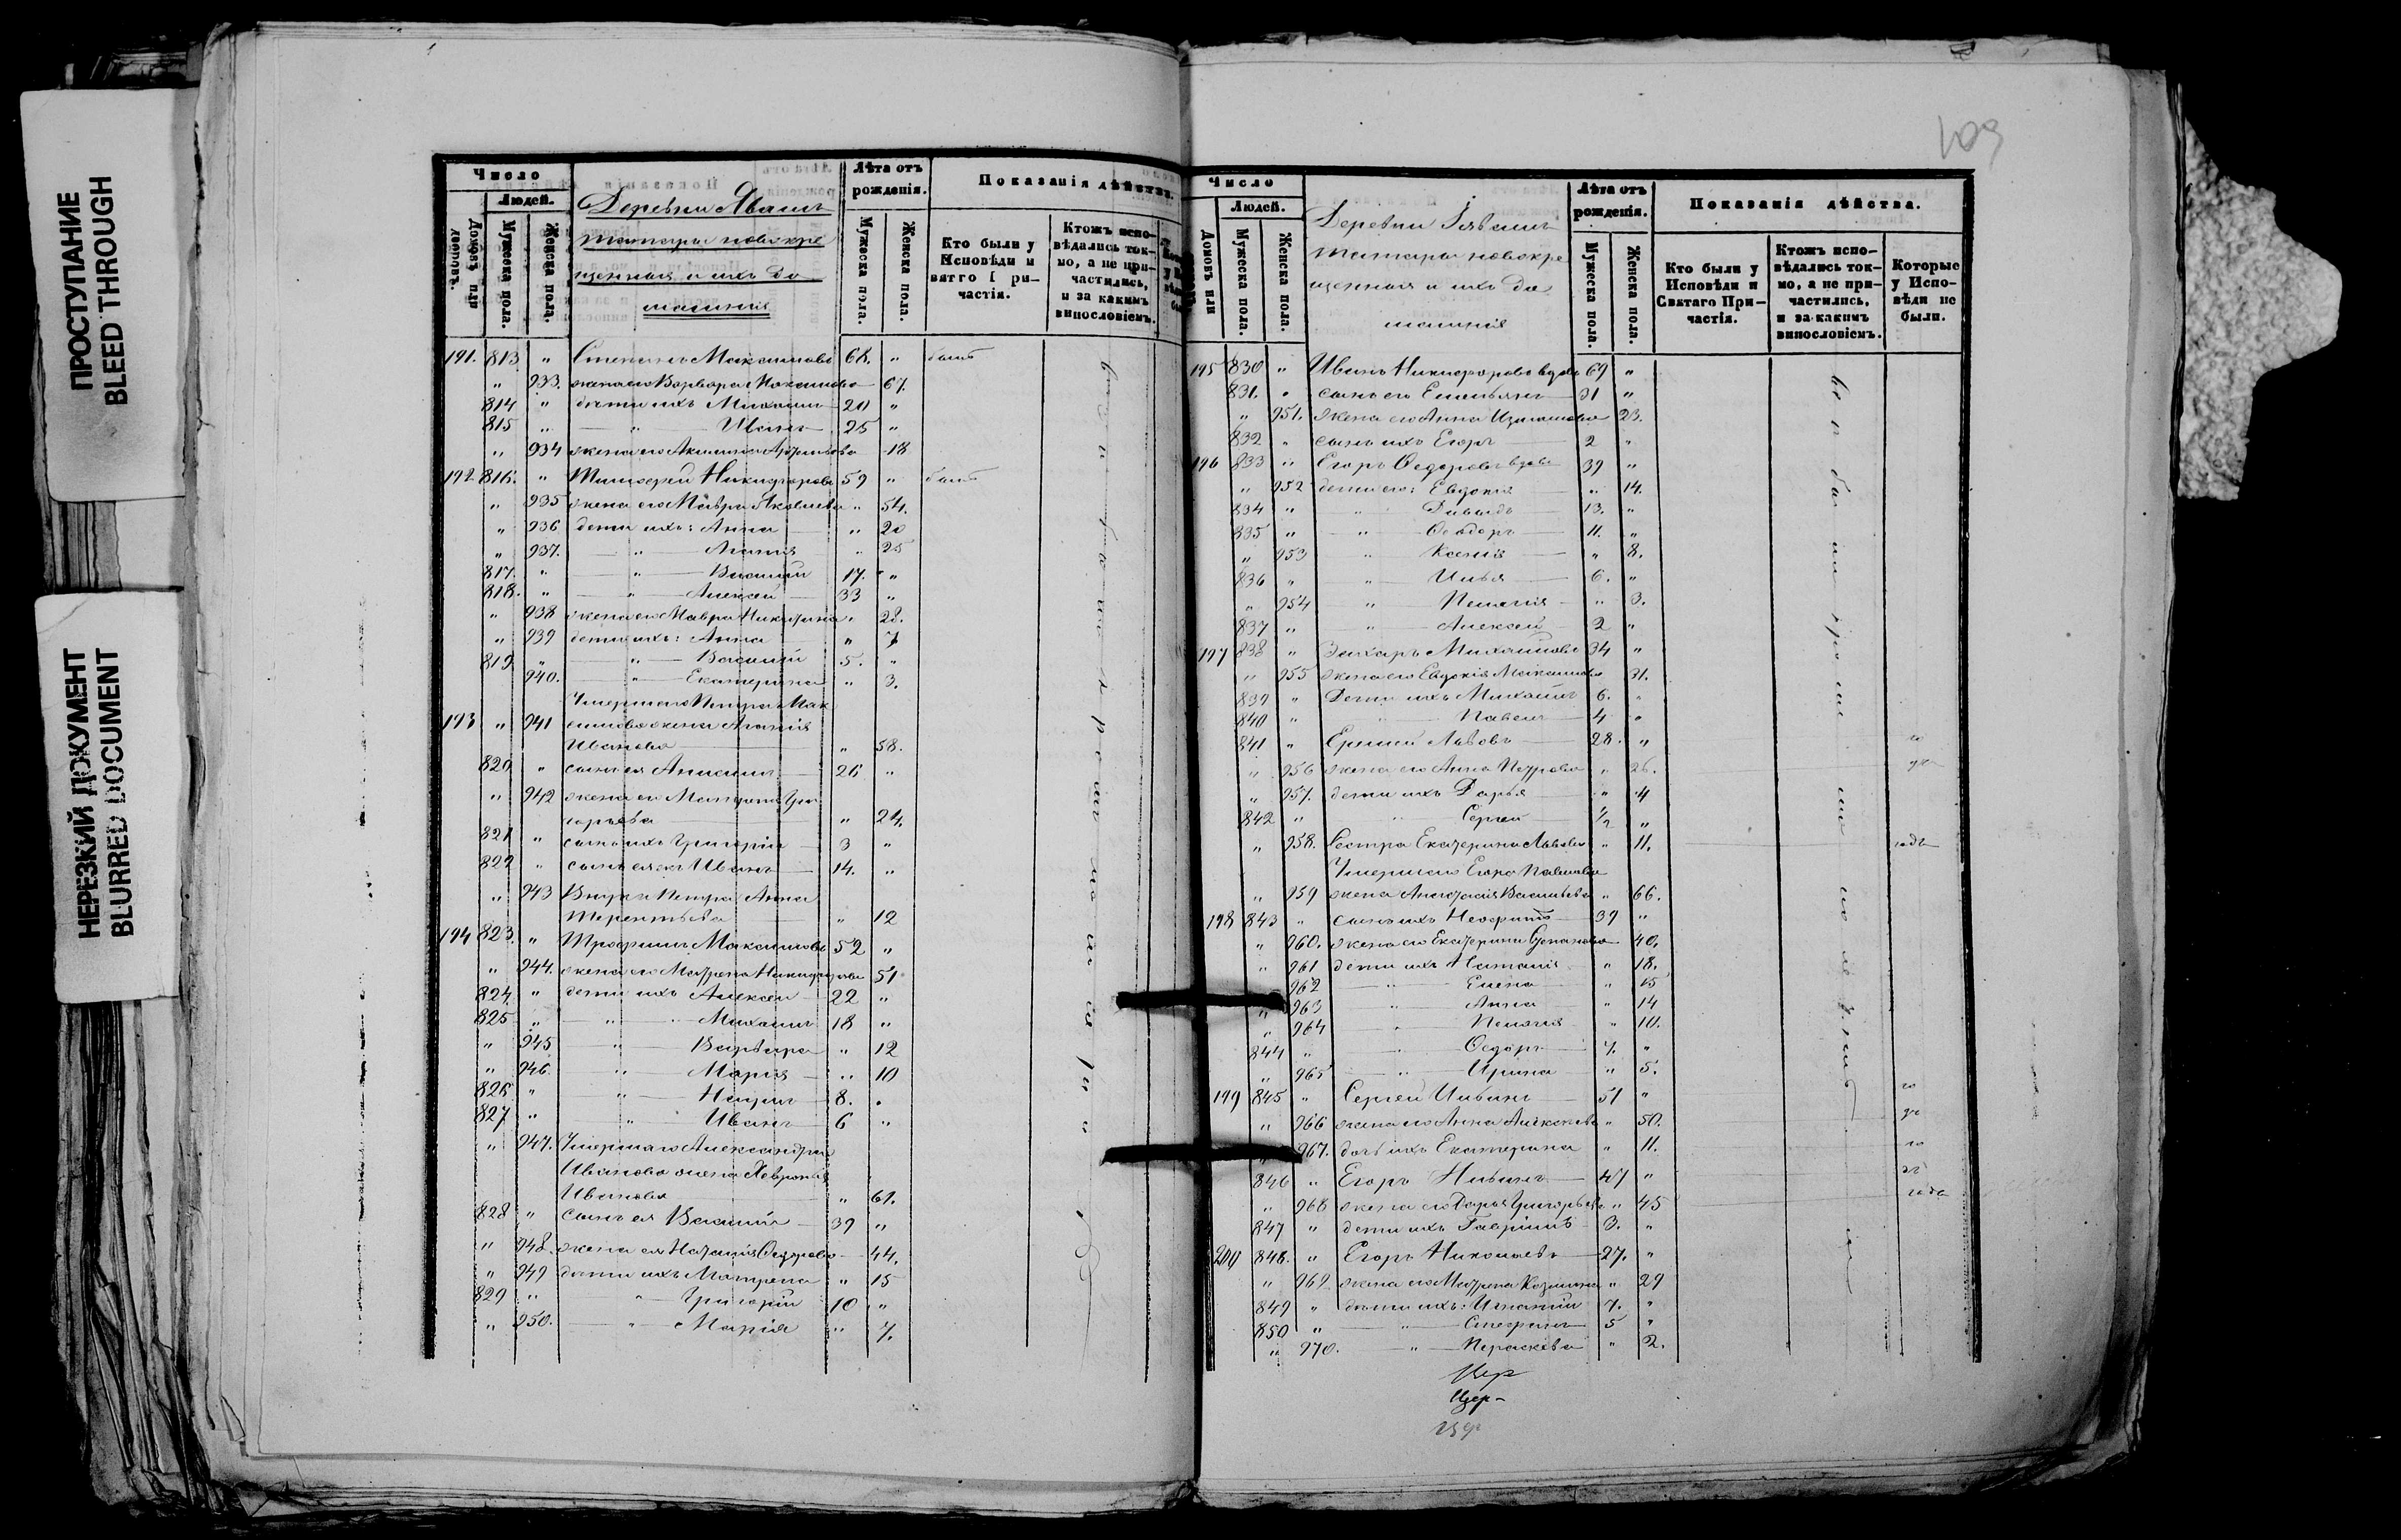 ПРОСТУПАНИЕ
BLEED THROUGH
НЕРЕЗКИЙ ДОКУМЕНТ
BLURRED DOCUMENT
109
Число
Людей.
Домовъ или
Мужеска пола.
Женска пола.
Деревни
татары новокре
щенныя и ихъ до
машнія
Лѣта отъ рожденія.
Мужеска пола.
Женска пола.
Показанія дѣйства.
Кто были у Исповѣди и
частія.
Ктожъ испо-
вѣдались ток-
мо, а не при-
частились,
и за какимъ
винословіемъ.
191. 813. " Степанъ Максимовъ 68. " былъ
" 933. жена его Варвара Максимова 67.
814 " дѣти ихъ Михаилъ 20 "
815 " " Иванъ 25 "
" 934 жена его Акилина 18
192 816. " Тимофей Никифоровъ 59 " былъ
" 935 жена его Мавра Яковлева " 54.
" 936 дети ихъ: Анна " 20
" 937. " Агапія " 25
817. " " Василий 17. "
818. " " Алексей 33 "
" 938 жена его Мавра Никитина " 28.
" 939 дети ихъ: Анна " 7
819. " " Василий 5. "
940. " Екатерина " 3.
Умершаго Петра Мак
193 " 941 симова жена Агапія
Иванова " 58.
820 " сынъ ея Анисимъ 26 "
" 942 жена его Матрена Гри
горьева " 24.
821 " сынъ ихъ Григорій 3 "
822 " сынъ ея же Иванъ 14. "
" 943 Внука Петра Анна
Терентьева " 12
194 823. " Трофимъ Максимовъ 52 "
" 944. жена его Матрена Никифорова 51
824. " дети ихъ Алексей 22 "
825 " " Михаилъ 18 "
" 945 " Варвара " 12
" 946. " Мария " 10
826 " " 8. "
827 " " Иванъ 6 "
" 947. Умершаго Александра
Иванова жена Хаврония
Иванова " 61.
828 " Сынъ ея Василий 39 "
" 948. жена его Наталия Федорова 44.
" 949 дѣти ихъ Матрена " 15
829 " " Григорій 10 "
" 950. " Марія " 7.
Число
Людей.
Домовъ или
Мужеска пола.
Женска пола.
Деревни
татары новокре
щенныя и ихъ до
машнія
Лѣта отъ рожденія.
Мужеска пола.
Женска пола.
Показанія дѣйства.
Кто были у
Исповѣди и
Святаго При-
частія.
Ктожъ испо-
вѣдались ток-
мо, а не при-
частились,
и за какимъ
винословіемъ.
Которые
у Испо-
вѣди не
были.
195 830 " Иванъ Никифоровъ вдовъ 69 "
831. " сынъ его Емельянъ 31 "
" 951. Жена его Анна 23.
832 " сынъ ихъ Егоръ 2 "
196 833 " Егоръ Федоровъ вдовъ 39 "
" 952 дети его: Евдокия " 14.
834 " " Давыдъ 13. "
835 " " Феодоръ 11. "
" 953 " Ксения " 8.
836 " " Илья 6. "
" 954 " Пелагия " 3.
837 " " Алексей 2 "
197 838 " Захаръ Михайловъ 34 "
" 955 жена его Евдокия Максимова 31.
839 " Дети ихъ Михаилъ 6. "
840 " " Павелъ 4 "
841 " Еремей Львовъ 28. "
" 956 жена его Анна Петрова " 26.
" 957. дети ихъ Дарья " 4
842 " " Сергей 1/2 "
" 958. Сестра Екатерина Львова " 11.
Умершаго Егора Павлова
" 959 жена Анастасія Васильева " 66.
198 843 " сынъ ихъ Неофитъ 39 "
" 960. жена его Екатерина Степанова 40.
" 961 дети ихъ Наталия " 18.
962 " Елена " 15
" 963 " Анна " 14
" 964 " Пелагия " 10.
844 " " Федоръ 7. "
" 965 " Ирина " 5.
199 845 " Сергей 51 "
" 966 жена его Анна Алексеева " 50.
" 967. дочь ихъ Екатерина " 11.
846 " Егоръ 47 "
" 968 жена его Дарья Григорьева " 45
847 " дети ихъ Гавриилъ 3. "
200 848. " Егоръ Николаевъ 27. "
" 969. жена его Матрена Козьмина " 29
849 " дѣти ихъ: Игнатий 7. "
850 " " Стефанъ 5 "
" 970. " Параскева " 2.